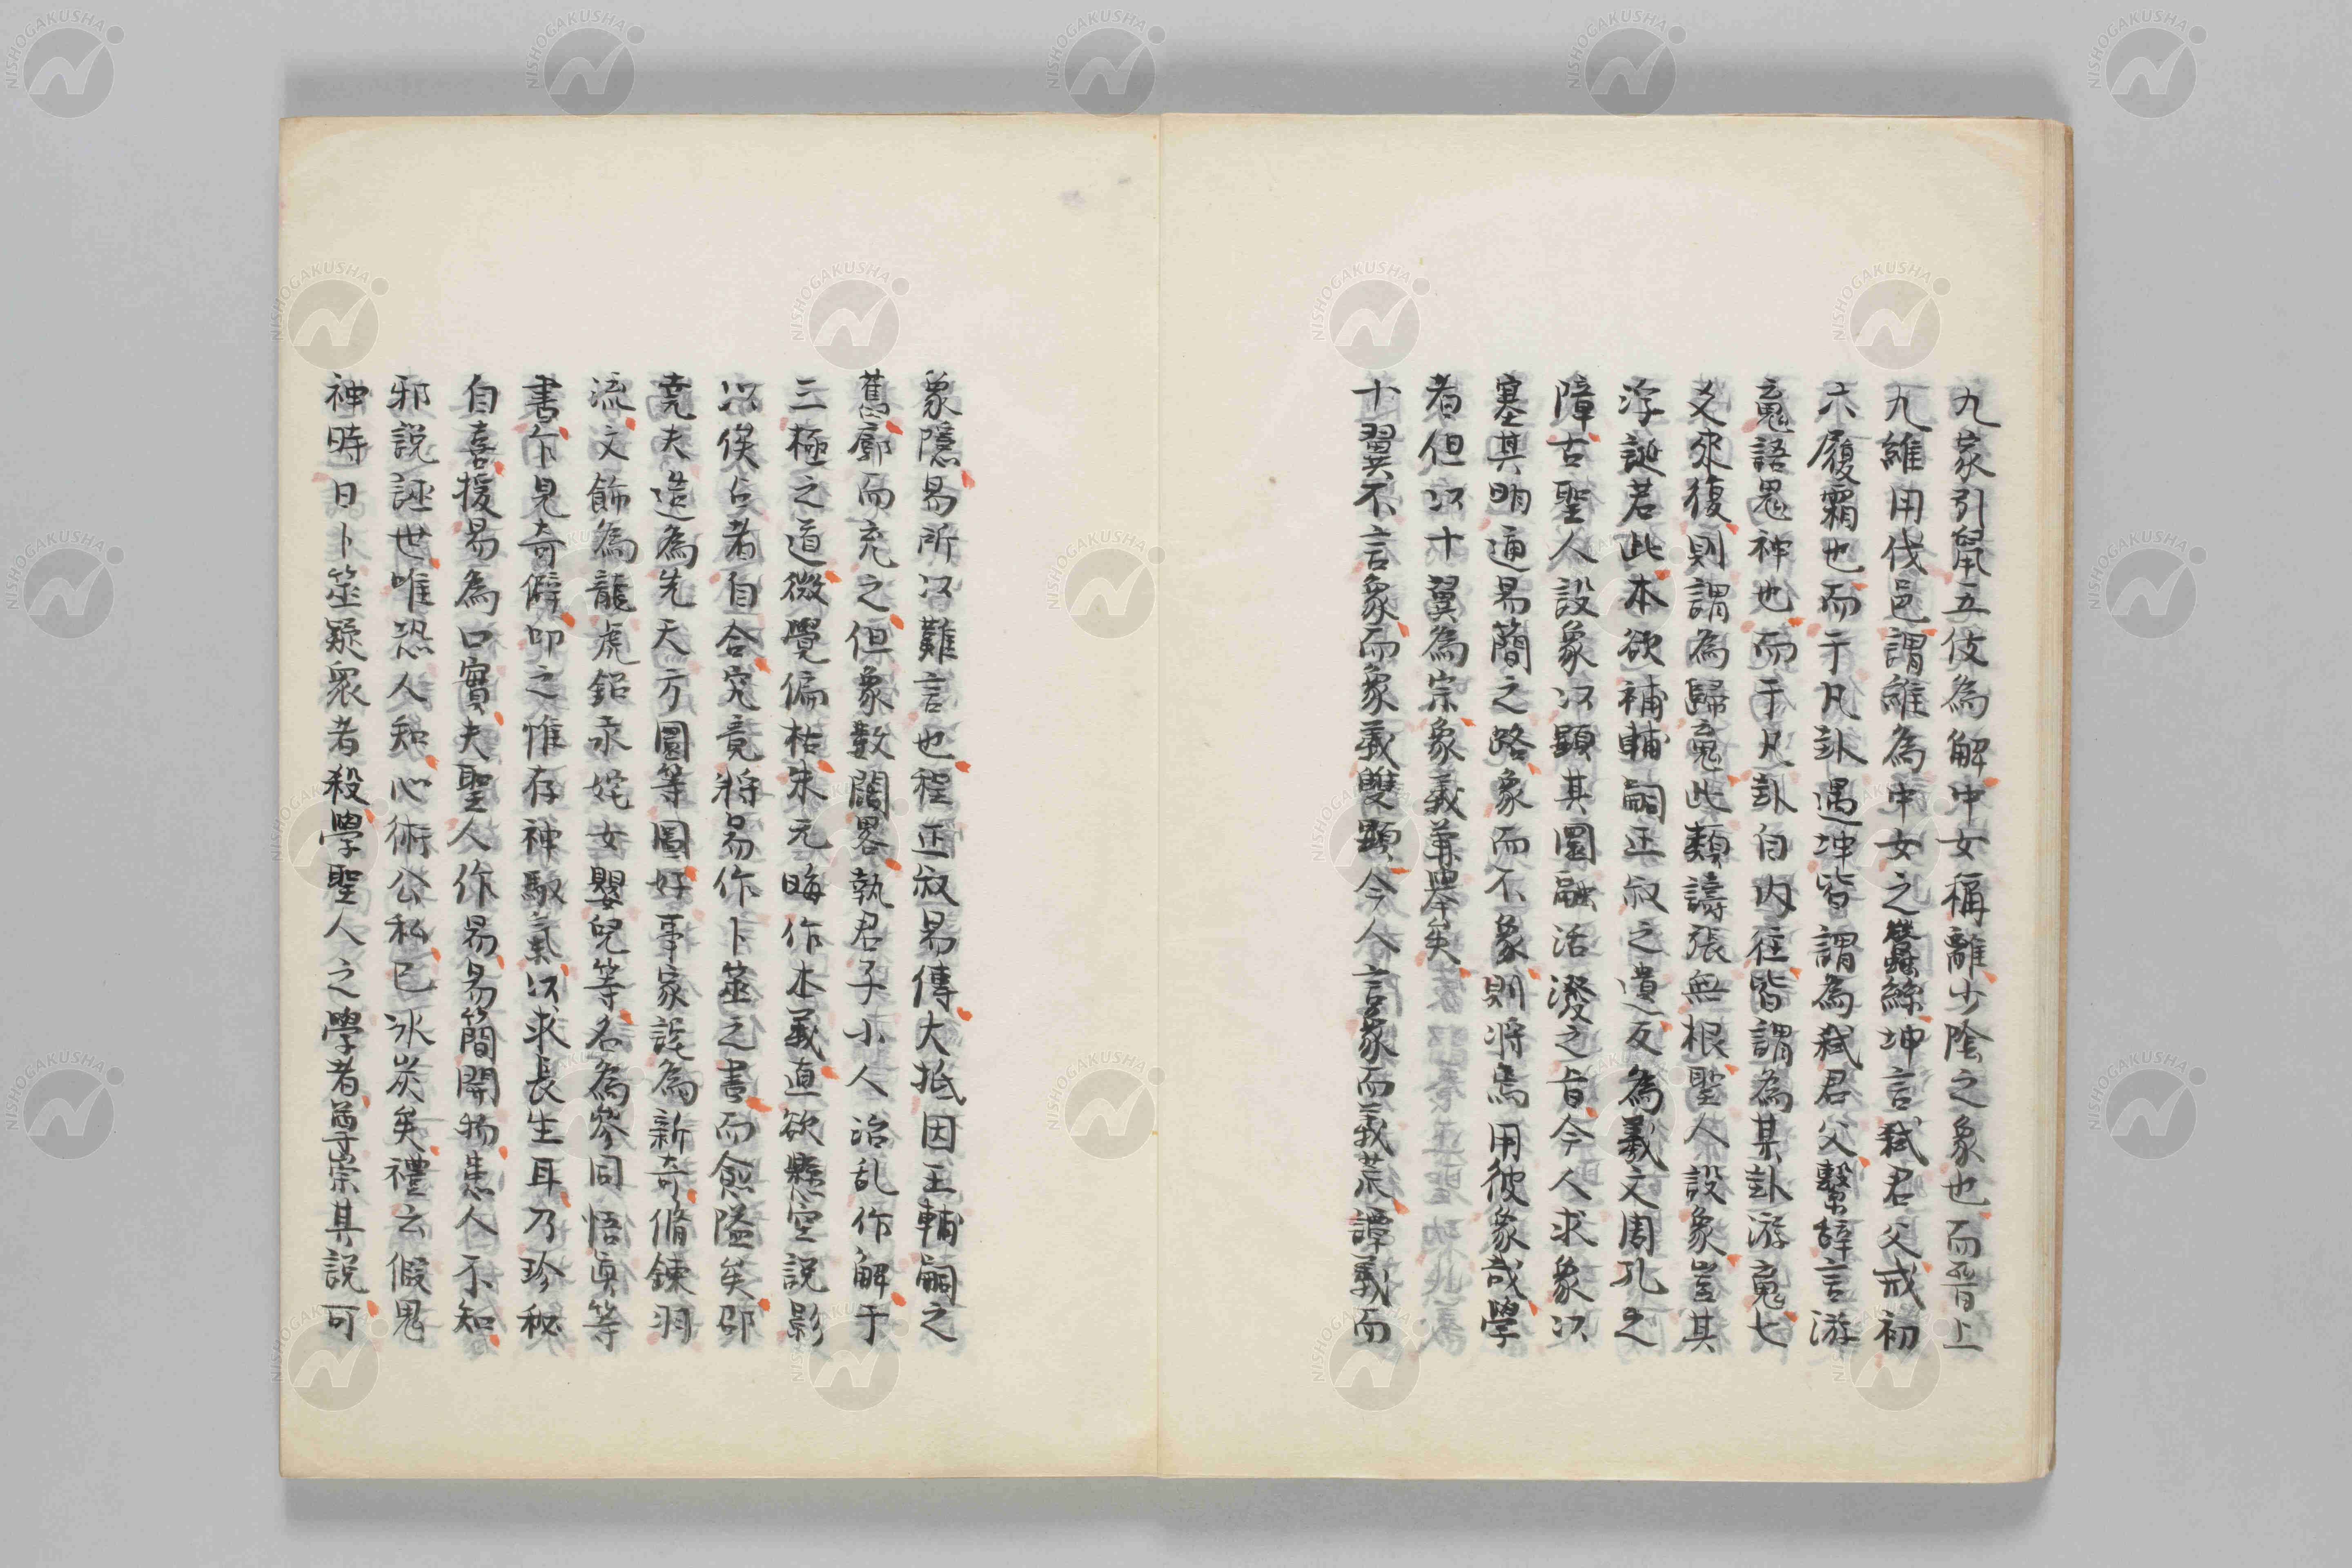 九家引鼠五伎為解中女稱離少陰之象也而晉上
九維用伐邑謂維為中女之蠶絲坤言弑君父戒初
六履霜也而于凡卦遇坤皆謂為弑君父繫辭言游
䰟語鬼神也而于凡卦自内往皆謂為某卦游䰟七
爻來復則謂為歸䰟此類譸張無根聖人設象豈其
浮誕若此本欲補輔嗣正叔之遺反為羲文周孔之
障古聖人設象以顯其圓融活潑之旨今人求象以
塞其明通易簡之路象而不象則將焉用彼象哉學
者但以十翼為宗象義兼舉矣
十翼不言象而象義雙顯今人言象而義荒譚義而
象隱易所以難言也程正叔易傳大抵因王輔嗣之
舊廓而充之但象數闊畧執君子小人治乱作解于
三極之道微覺偏枯朱元晦作本義直欲懸空說影
以俟占者自合究竟將易作卜筮之書而愈隘矣邵
堯夫造為先天方圓等圖好事家詫為新奇脩鍊羽
流文飾為龍虎鉛汞姹女嬰兒等名為參同悟眞等
書卞見奇僻叩之惟存神馭氣以求長生耳乃珍秘
自喜援易為口實夫聖人作易易簡開物患人不知
邪說誣世唯恐人知心術公私已冰炭矣禮云假鬼
神時日卜筮疑衆者殺學聖人之學者尊崇其說可